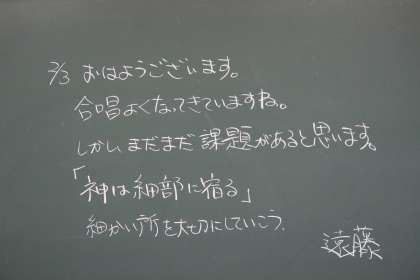 2/3 おはようございます。
合唱よくなってきていますね。
しかしまだまだ課題があると思います。
「神は細部に宿る」
細かい所を大切にしていこう.
遠藤